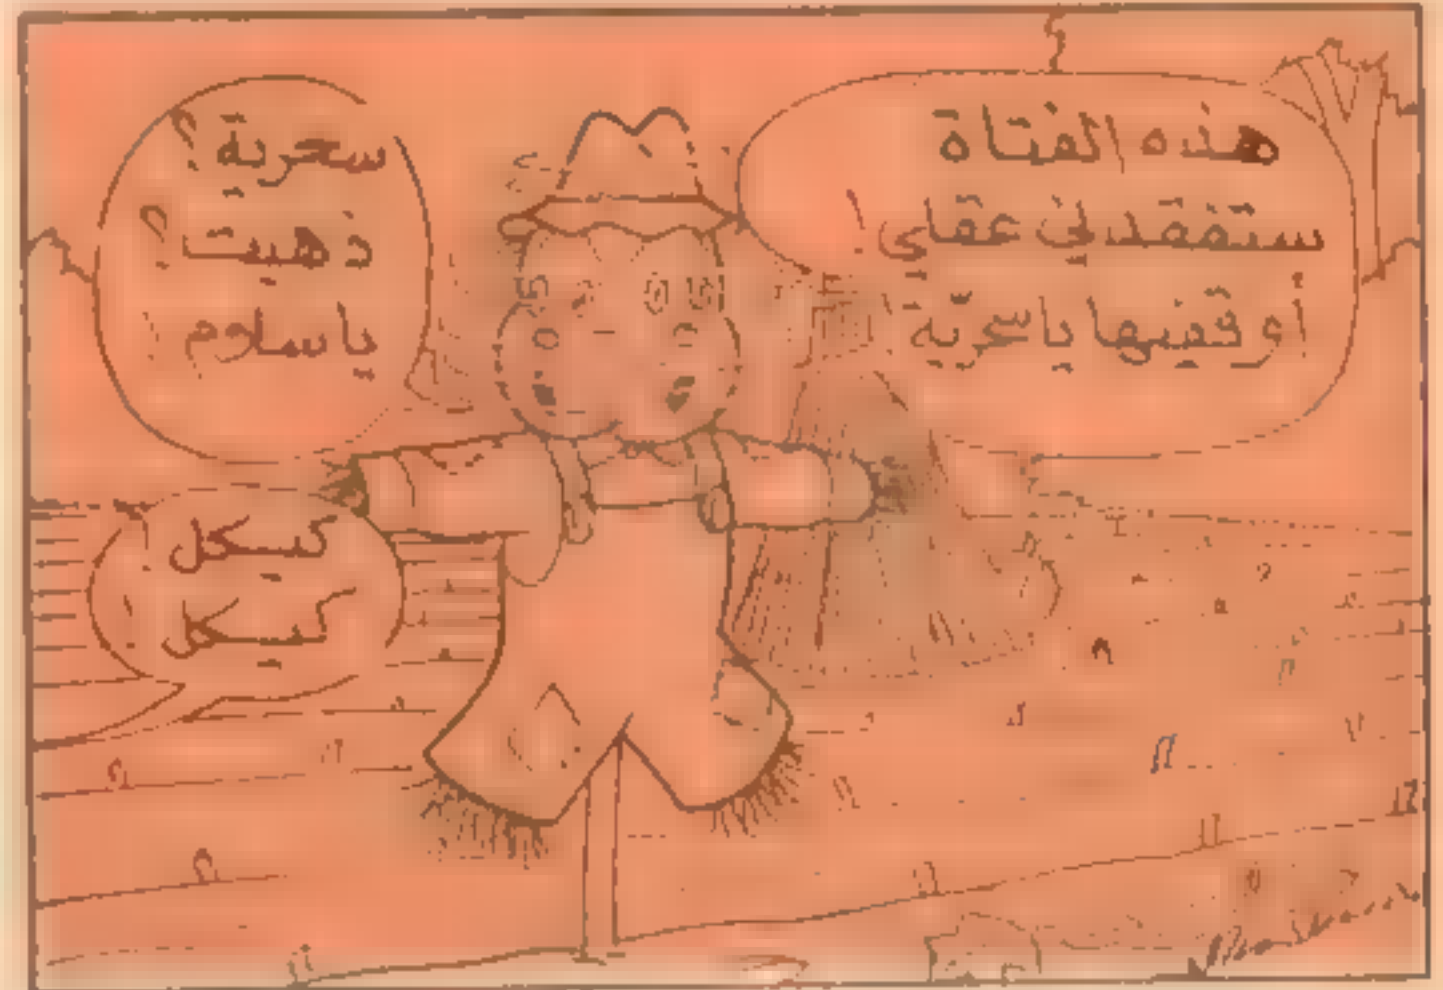 هذه الفتاة
ستفقدني عقلي !
أوقفيها يا سحريّة
سحرية ؟
ذهبت ؟
يا سلام !
كيسكل
كيسكل !